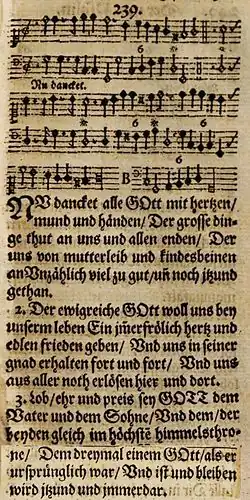 239.
6 *
Nu dancket.
6
* 6 * 6
6
B
NU dancket alle GOtt mit hertzen/
mund und händen/ Der grosse din-
ge thut an uns und allen enden/ Der
uns von mutterleib und kindesbeinen
an Vnzählich viel zu gut/ uñ noch itzund
gethan.
2. Der ewigreiche GOtt woll uns bey
unserm leben Ein jm̃erfrölich hertz und
edlen frieden geben/ Vnd uns in seiner
gnad erhalten fort und fort/ Vnd uns
aus aller noth erlösen hier und dort.
3. Lob/ehr und preis sey GOTT dem
Vater und dem Sohne/ Vnd dem/ der
beyden gleich im höchstẽ himmelsthro-
ne/ Dem dreymal einem GOtt/als er
ursprünglich war/ Vnd ist und bleiben
wird jtzund und jmmerdar.